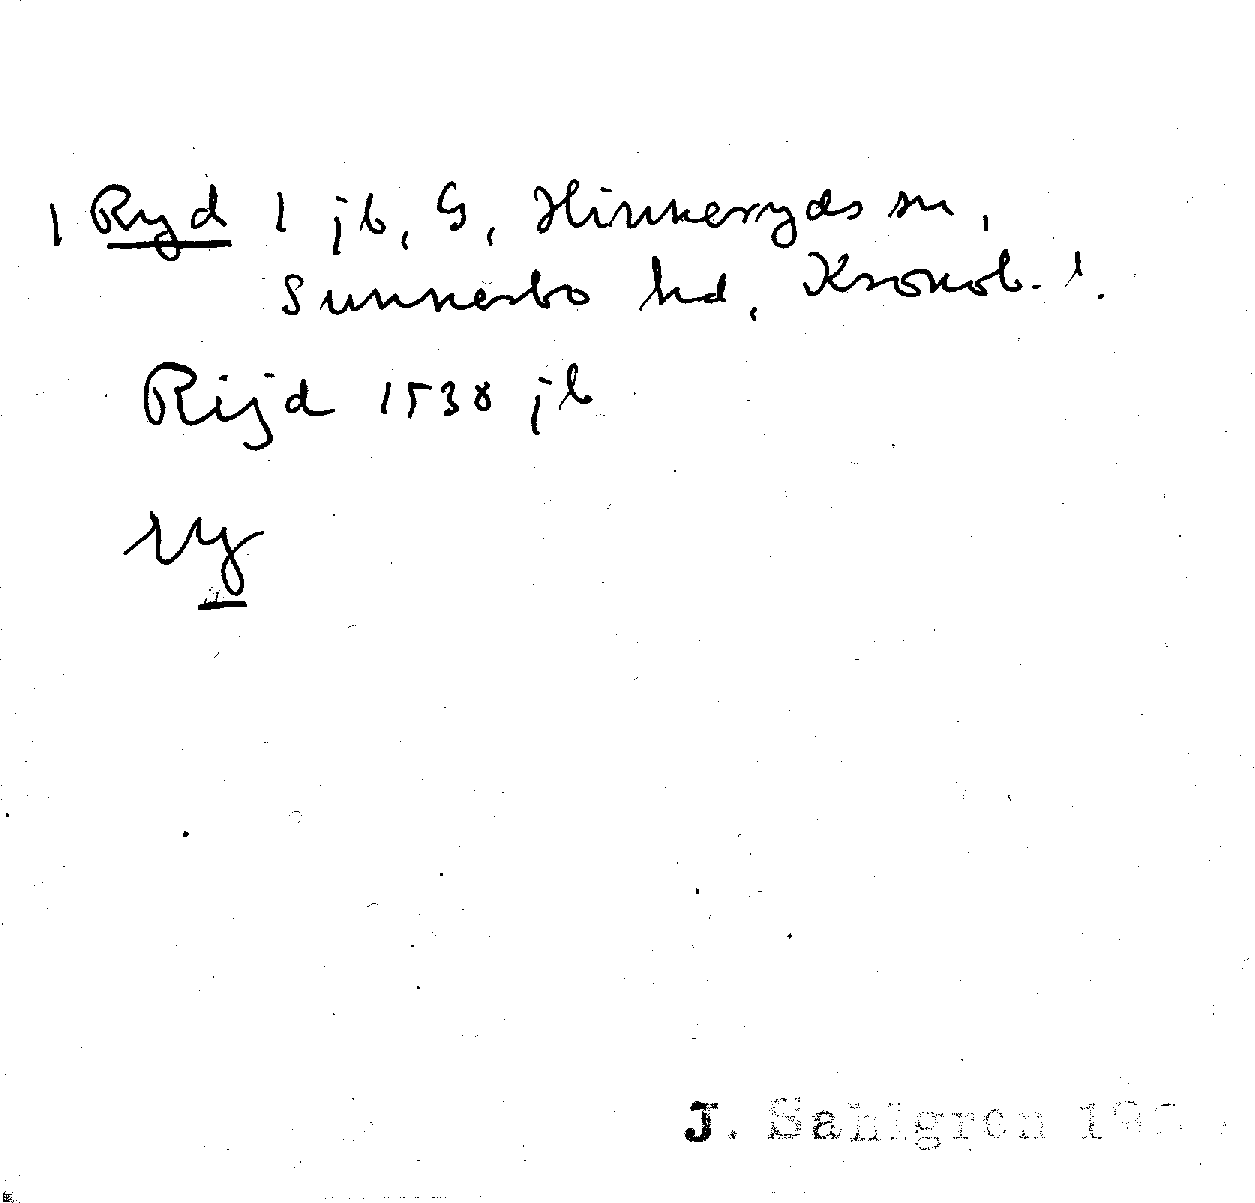 1 Ryd 1 jb, G, Hinnerydss sn,
Sunnerbo hd, Kronob. l.
Rijd 1538 jb
ry
J. Sahlgren